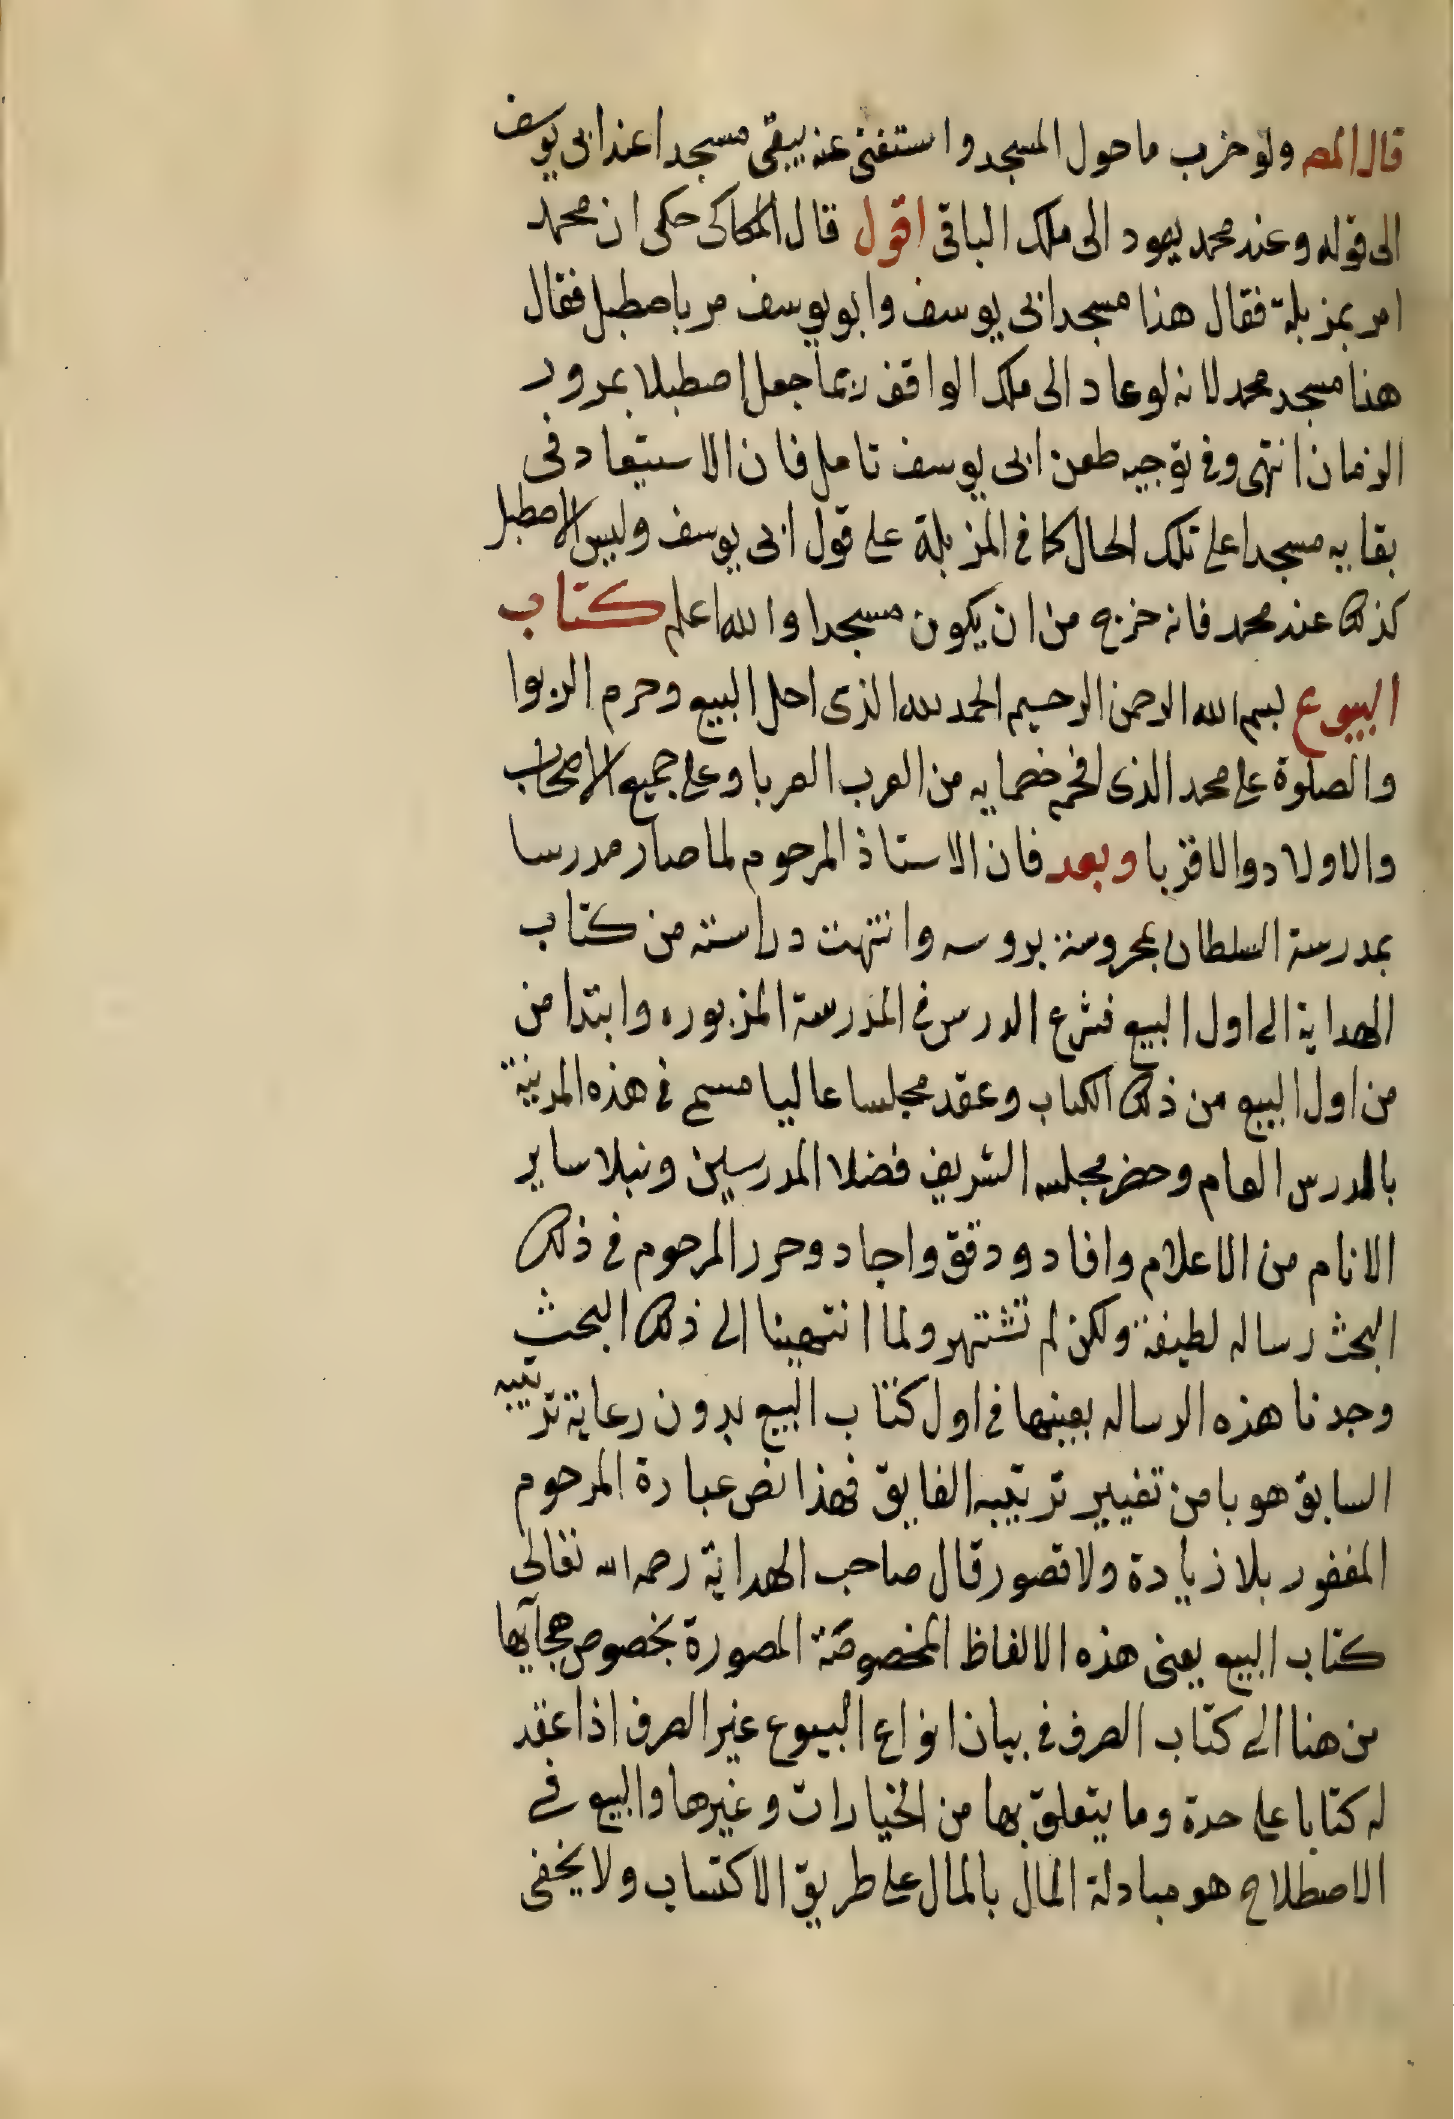 قال المص ولو خرب ما حول المسجد واستغنى عنه يبقى مسجدا عند ابى يوسف
الى قوله وعند محمد يعود الى ملك البانى اقول قال الكاكى حكى ان محمد
امر بمزبلة فقال هذا مسجد ابى يوسف وابو يوسف مر باصطبل فقال
هذا مسجد محمد لانه لو عاد الى ملك الواقف ربما جعل اصطبلا بمرور
الزمان انتهى وفى توجيه طعن ابى يوسف تامل فان الاستبعاد فى
بقايه مسجدا على تلك الحال كما فى المزبلة على قول ابى يوسف وليس الاصطبل
كذلك عند محمد فانه خرج من ان يكون مسجدا والله اعلم كتاب
البيوع بسم الله الرحمن الرحيم الحمد لله الذى احل البيع وحرم الربوا
والصلوة على محمد الذى افحم خصمايه من العرب العربا وعلى جميع الاصحاب
والاولاد والاقربا وبعد فان الاستاذ المرحوم لما صار مدرسا
بمدرسة السلطان بمحروسة بروسه وانتهت دراسته من كتاب
الهداية الى اول البيع فشرع الدرس فى المدرسة المزبوره وابتدا من
من اول البيع من ذلك الكتاب وعقد مجلسا عاليا مسمى فى هذه المدينة
بالدرس العام وحضر مجلسه الشريف فضلا المدرسين ونبلا ساير
الانام من الاعلام وافاد ودقق واجاد وحرر المرحوم فى ذلك
البحث رساله لطيفة ولكن لم تشتهر ولما انتهينا الى ذلك البحث
وجدنا هذه الرساله بعينها فى اول كتاب البيع بدون رعاية ترتيبه
السابق هوبا من تغيير ترتيبه الفايق فهذا نص عبارة المرحوم
المغفور بلا زيادة ولا قصور قال صاحب الهداية رحمه الله تعالى
كتاب البيع يعنى هذه الالفاظ المخصوصة المصورة بخصوص هجآيها
من هنا الى كتاب الصرف فى بيان انواع البيوع غير الصرف اذا عقد
له كتابا على حدة وما يتعلق بها من الخيارات وغيرها والبيع فى
الاصطلاح هو مبادلة المال بالمال على طريق الاكتساب ولا يخفى